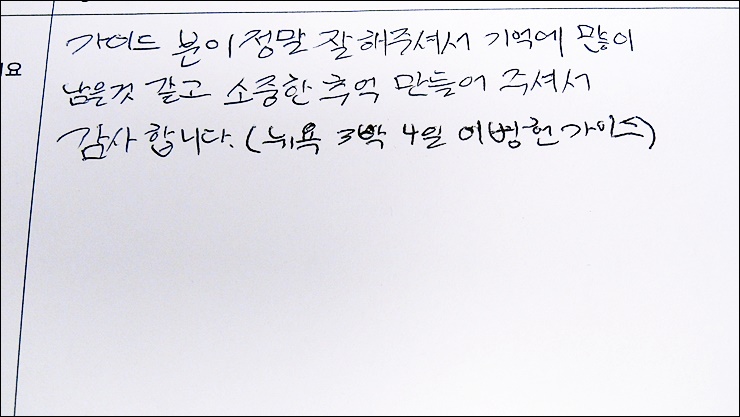 가이드 분이 정말 잘해주셔서 기억에 많이
요
남은것 같고 소중한 추억 만들어 주셔서
감사합니다. (뉴욕 3박 4일 이병헌 가이드)